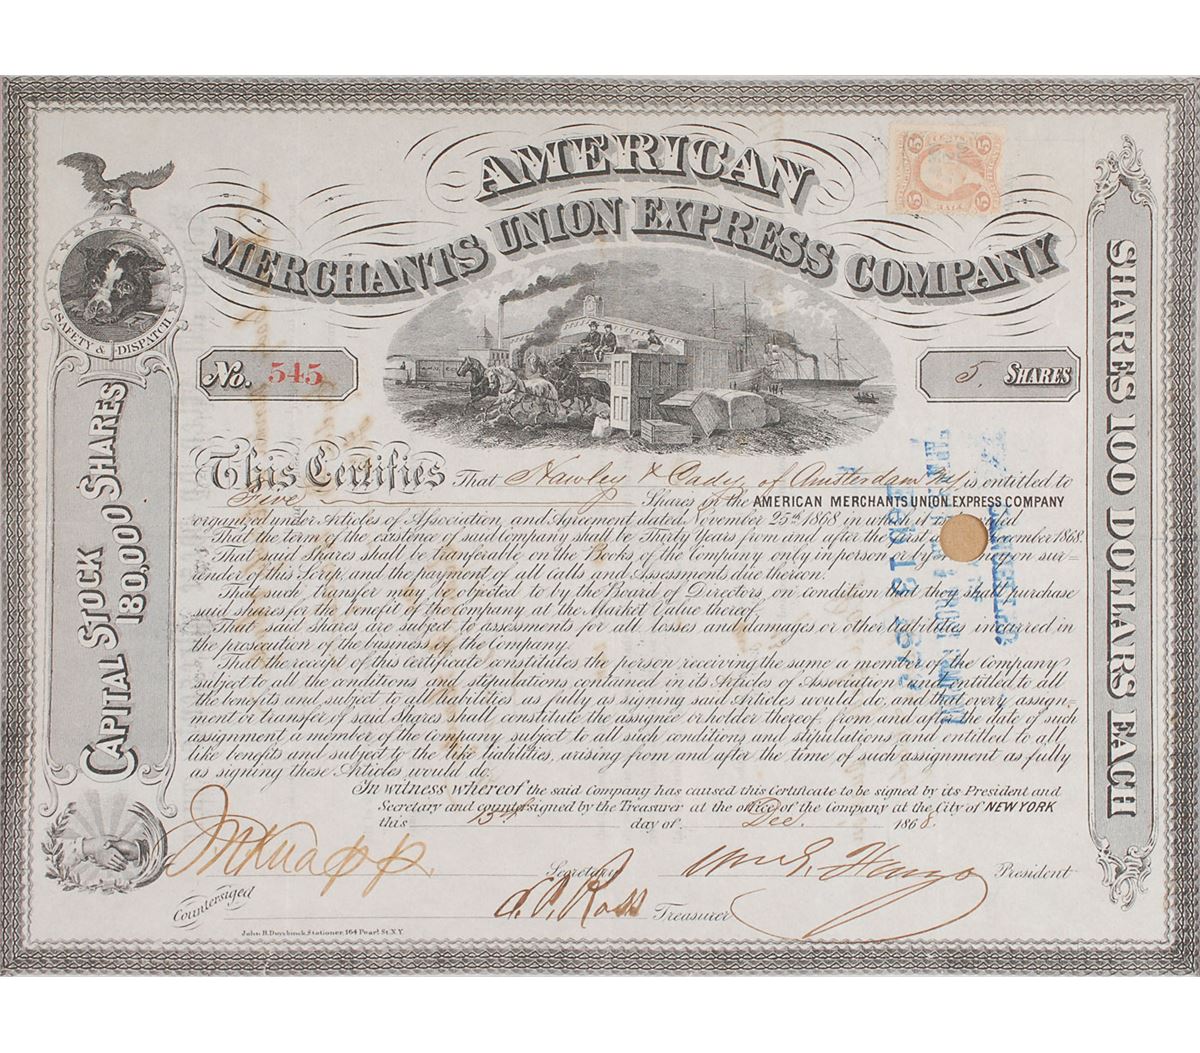 AMERICAN
MERCHANTS UNION EXPRESS COMPANY
SAFETY & DISPATCH
No. 545
5 SHARES
CAPITAL STOCK
180,000 SHARES
SHARES 100 DOLLARS EACH
This Certifies That Hawley & Cady of Amsterdam NY is entitled to
Five Shares in the AMERICAN MERCHANTS UNION EXPRESS COMPANY
organized under Articles of Association, and Agreement dated November 25th 1868 in which it is
That the term of the existence of said Company shall be Thirty Years from and after the first December 1868.
That said Shares shall be transferable on the Books of the Company only in person or by on sur-
render of this Scrip, and the payment of all Calls and Assessments due thereon.
That such Transfer may be objected to by the Board of Directors, on condition that they shall purchase
said shares for the benefit of the Company at the Market Value thereof.
That said shares are subject to assessments for all losses and damages or other liabilities incurred in
the prosecution of the business of the Company.
That the receipt of this certificate constitutes the person receiving the same a member of the Company
subject to all the conditions and stipulations contained in its Articles of Association and entitled to all
the benefits and subject to all liabilities as fully as signing said Articles would do, and that every assign-
ment or transfer of said Shares shall constitute the assignee or holder thereof from and after the date of such
assignment a member of the Company subject to all such conditions and stipulations and entitled to all
like benefits and subject to the like liabilities, arising from and after the time of such assignment as fully
as signing these Articles would do.
In witness whereof the said Company has caused this Certificate to be signed by its President and
Secretary and countersigned by the Treasurer at the office of the Company at the City of NEW YORK
this 15th day of Dec. 1868.
J. N. Knapp Secretary Wm G. Fargo President
Countersigned A. P. Ross Treasurer
John B. Duyckinck, Stationer, 164 Pearl St. N.Y.